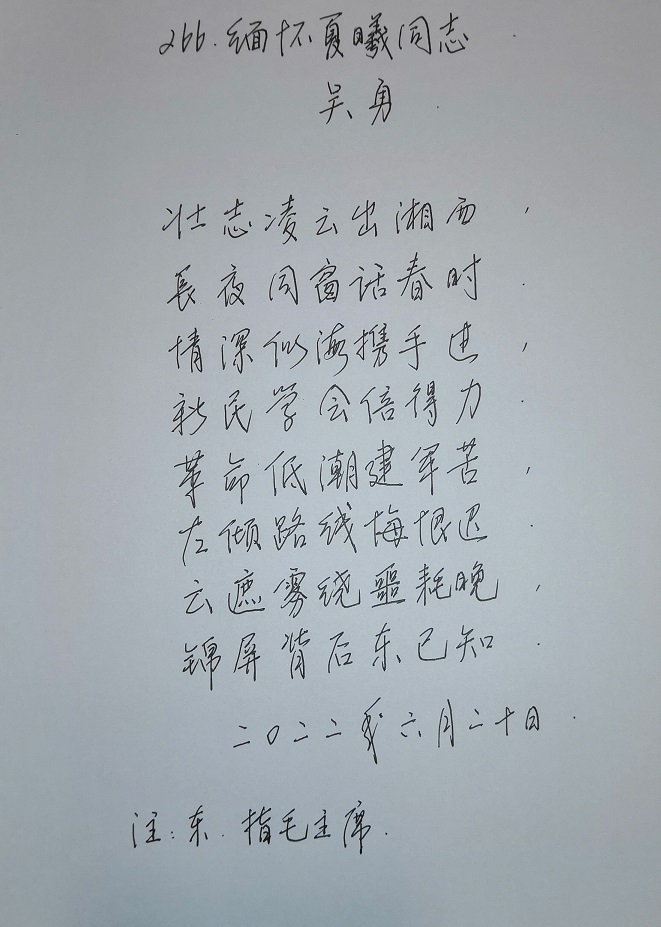 266.缅怀夏曦同志
吴勇
壮志凌云出湘西，
长夜同窗话春时．
情深似海携手进，
新民学会倍得力．
革命低潮建军苦，
左倾路线悔恨迟．
云遮雾绕噩耗晚，
锦屏背后东已知．
二〇二二年六月二十日．
注:东.指毛主席．